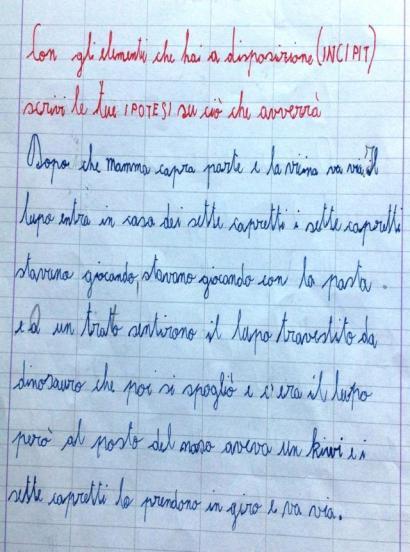 Con gli elementi che hai a disposizione (INCIPIT)
scrivi le tue IPOTESI su ciò che avverrà
Dopo che mamma capra parte e la vicina va via, Il
lupo entra in casa dei sette capretti i sette capretti
stavano giocando, stavano giocando con la pasta
e a un tratto sentirono il lupo travestito da
dinosauro che poi si spogliò e c'era il lupo
però al posto del naso aveva un kiwi e i
sette capretti lo prendono in giro e va via.